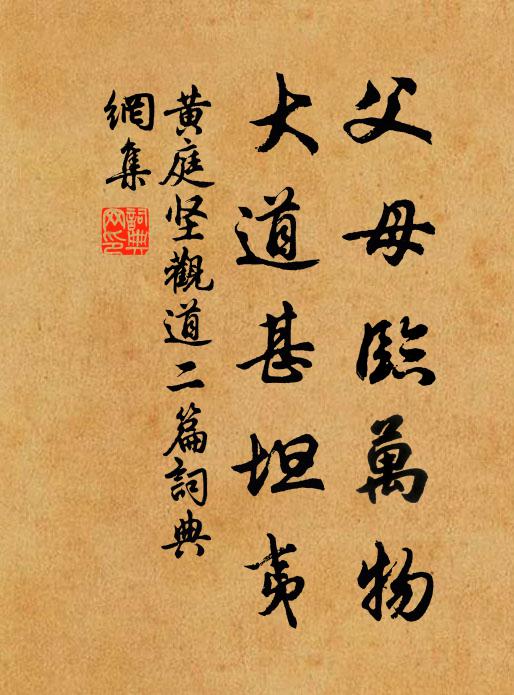 父母臨萬物
大道甚坦夷
黄庭坚觀道二篇詞典
網集
詞典
网印